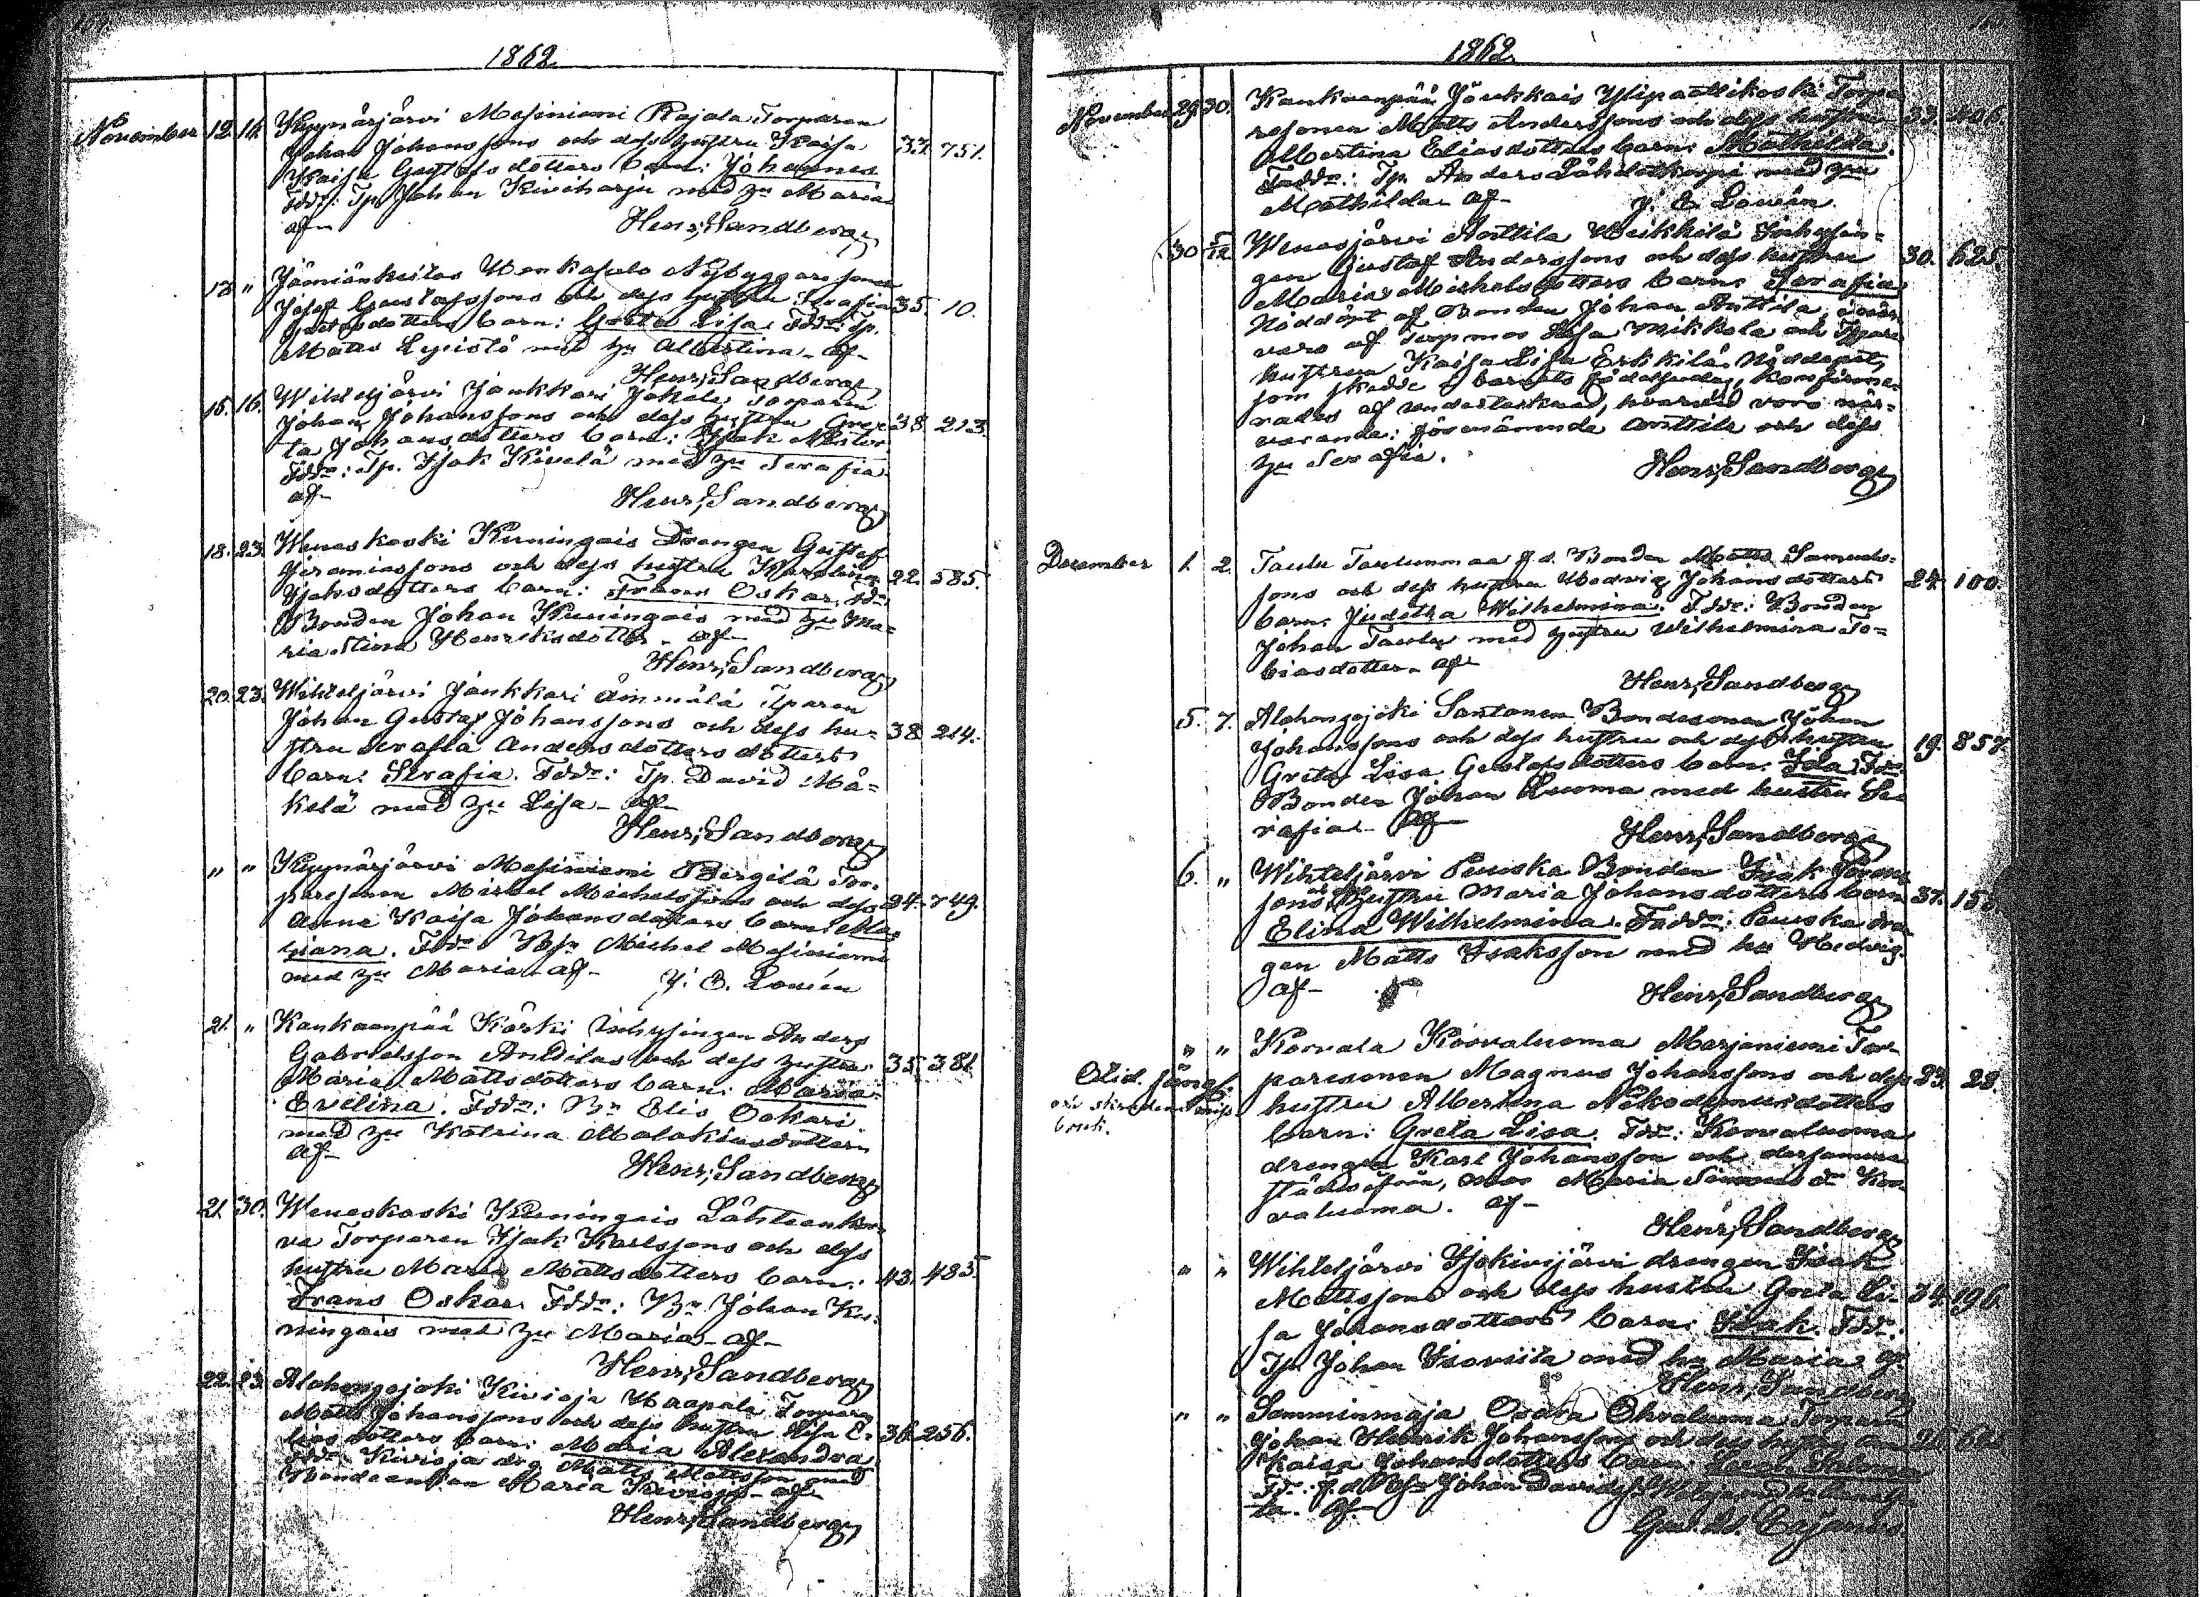 1862
November 12. 16. Kyynärjärvi Mesiniemi Rajala Torparen
Johan Johanssons och dess hustru Kaisa 33. 751.
Kaisa Gustafsdotters barn: Johannes
Fddr: Tp. Johan Kiviharju med hu Maria
af Henr. Sandberg
13. " Jämiänkeitas Nybyggaresonen
Josef Gustafssons och dess hustru Serafia 35. 10.
dotters barn: Greta Lisa. Fddr: Tp.
Matts Lepistö med hu Albertina - af -
Henr. Sandberg
15. 16. Wihteljärvi Jankkari Jokela Torparen
Johan Johanssons och dess hustru Gre- 38 213.
ta Johansdotters barn: Isak Nestor
Fddr: Tp. Isak Kivelä med hu Serafia
af - Henr. Sandberg
18. 23. Weneskoski Kuningais Drengen Gustaf
Jeremiassons och dess hustru Karolina 22. 585.
Isaksdotters barn: Frans Oskar. Fddr:
Bonden Johan Kuningais med hu Ma=
ria Stina Henriksdotter - af -
Henr. Sandberg
20. 23. Wihteljärvi Jankkari Ämmälä Tparen
Johan Gustaf Johanssons och dess hu= 38 214.
stru Serafia Andersdotters dotters
barn: Serafia. Fddr: Tp. David Mä=
kelä med hu Lisa - af -
Henr. Sandberg
" " Kyynärjärvi Mesiniemi Birgilä Tor-
paresonen Mickel Michelssons och dess 24. 749.
Anna Kaisa Johansdotters barn: Ma=
riana. Fddr: Michel Mesiniemi
med hu Maria - af - J. E. Lovén
21. " Kankaanpää Körki Inhysingen Anders
Gabrielsson Anttilas och dess hustru 35. 381.
Maria Mattsdotters barn: Maria
Evelina. Fddr: Bn Elis Oskari
med hu Katrina Malakiasdotter
af - Henr. Sandberg
21. 30. Weneskoski Kuningais Lähteenkor=
va Torparen Isak Karlssons och dess
hustru Maria Mattsdotters barn: 43. 483.
Frans Oskar. Fddr: Bn Johan Ku-
ningais med hu Maria - af -
Henr. Sandberg
22. 23. Alahongojoki Kivioja Haapala Torparen
Matts Johanssons och dess hustru Lisa E- 36. 256.
liasdotters barn: Maria Alexandra
Fddr: Kivioja drg Matts Mattsson med
Maria Kivioja - af -
Henr. Sandberg
1862.
November 29. 30. Kankaanpää Jöukkais Ylipaattikoski Torpa-
resonen Matts Anderssons och dess hustru 33. 406.
Albertina Eliasdotters barn: Mathilda.
Faddr: Tp. Anders Lähdekorpi med hu
Mathilda. af - J. E. Lovén.
30 5/12 Wenesjärvi Anttila Heikkilä Inhysin=
gen Gustaf Anderssons och dess hustru 30. 625.
Maria Michelsdotters barn: Serafia
Nöddöpt af Bonden Johan Anttila,
varo af Lisa Mikkola och
hustrun Kaisa Lisa Erkkilä. Nöddopet,
som skedde å barnets födelsedag, konfirme-
rades af undertecknad, hvarvid voro när=
varande: förenämnde Anttila och dess
hu Serafia. Henr. Sandberg
December 1. 2. Taulu Taulunmaa f.d. Bonden Matts Samuels=
sons och dess hustru Hedvig Johansdotters 24. 100.
barn: Juditha Wilhelmina. Fddr: Bonden
Johan Taulu med hustru Wilhelmina To=
biasdotter - af -
Henr. Sandberg
5. 7. Alahongojoki Santanen Bondesonen Johan
Johanssons och dess hustru och dess hustru 19. 857.
Greta Lisa Gustafsdotters barn: Ida. Fddr:
Bonden Johan Luoma med hustru Se-
rafia - af -
Henr. Sandberg
6. " Wihteljärvi Peuska Bonden Isak
sons och dess hustru Maria Johansdotters barn 37.
Elina Wilhelmina. Faddr: Peuska dren
gen Matts Isaksson med hu Hedvig.
af - Henr. Sandberg
" " Korvala Korvaluoma Marjaniemi Tor-
paresonen Magnus Johanssons och dess 23. 28.
hustru Albertina Nikodemusdotters
barn: Greta Lisa. Fddr: Korvaluoma
drengen Karl Johansson och dersamma
städes Maria Simons dr Kor
valuoma. af -
Henr. Sandberg
" " Wihteljärvi Isokivijärvi drengen Isak
Mattssons och dess hustru Greta Li- 34. 196.
sa Johansdotters barn: Isak. Fddr:
Tp. Johan Isoviita med hu Maria. af
Henr. Sandberg
" " Samminmaja Osara Ohraluoma Torparen
Johan Henrik Johanssons och dess hustru
Kaisa Johansdotters barn:
Johan Davidsson
ta. af -